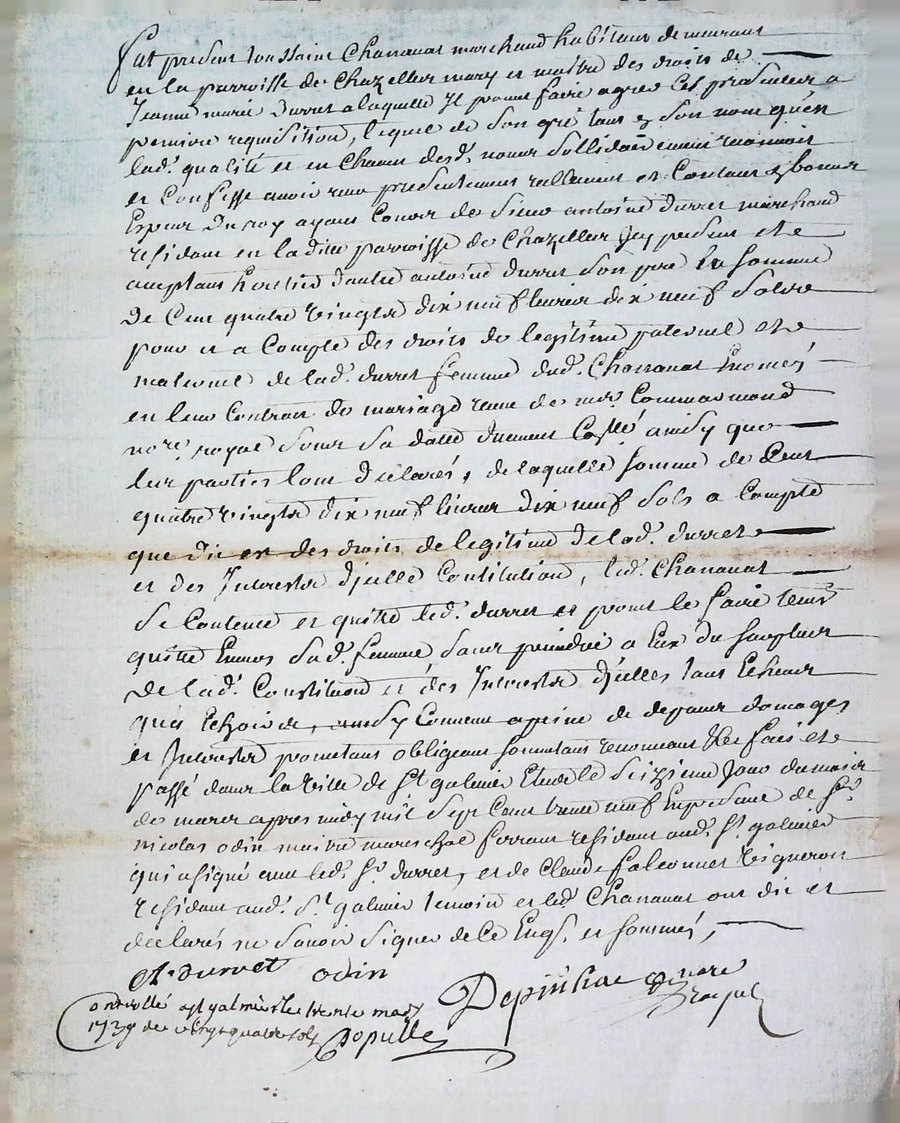 fut present toussaint Chanavat marchand habitant demeurant
en la parroisse de Chazelles mary et maitre des droits de
Jeanne marie durret a laquelle Il promet faire agreer ces presentes a
premiere requisition, lequel de son gré tant en son nom qu'en
lad. qualité et en Chacun desd. noms sollidairement reconnoit
et Confesse avoir receu presentement reellement et Contant en bonnes
Especes du roy ayans Cours de sieur antoine durret marchand
residant en la ditte parroisse de Chazelles Icy present et
acceptant heritier d'autre antoine durret son pere la somme
de Cent quatre vingts dix neuf livres dix neuf sols
pour et a Compte des droits de legitime paternel et
maternel de lad. durret femme dud. Chanavat Enoncés
en leur Contrat de mariage receu de me. Commarmond
nore. royal sous sa datte duement Collé ainsy que
les parties l'ont declarés, de laquelle somme de Cent
quatre vingts dix neuf livres dix neuf sols a Compte
que dit est des droits de legitime de lad. durret
et des Interests d'jcelle Constitution, led. Chanavat
se Contente et quitte led. durret et promet le faire tenir
quitte Envers sad. femme sans prejudice a Eux du surplus
de lad. Constitution et des Interests d'jcelles tant Echeus
qu'a Echoir, ainsy Convenu a peine de depans domages
et Interests promettans obligeans soumettans renonceans fait et
passé dans la ville de st galmier Etude le seizieme Jour du mois
de mars apres midy mil sept Cent trente neuf En presence de sr.
nicolas odin maitre mareschal ferrant residant aud. st. galmier
qui a signé avec led. sr. durret, et de Claude falconnet vigneron
residant aud. st. galmier temoins et led. Chanavat ont dit et
declarés ne savoir signer de ce Enqs. et sommés,
A. durret odin
Depinhac nore
royal
Controllé a st galmier le trente mars
1739 recu vingt quatre sols
Populle